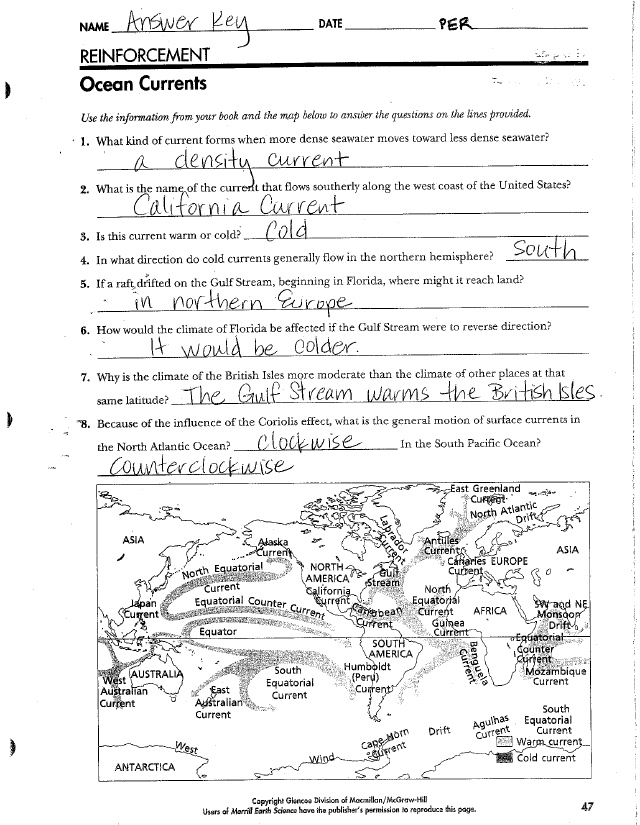 NAME Answer Key DATE PER
REINFORCEMENT
Ocean Currents
Use the information from your book and the map below to answer the questions on the lines provided.
1. What kind of current forms when more dense seawater moves toward less dense seawater?
a density current
2. What is the name of the current that flows southerly along the west coast of the United States?
California Current
3. Is this current warm or cold? Cold
4. In what direction do cold currents generally flow in the northern hemisphere? South
5. If a raft drifted on the Gulf Stream, beginning in Florida, where might it reach land?
in northern Europe
6. How would the climate of Florida be affected if the Gulf Stream were to reverse direction?
It would be colder.
7. Why is the climate of the British Isles more moderate than the climate of other places at that
same latitude? The Gulf Stream warms the British Isles.
8. Because of the influence of the Coriolis effect, what is the general motion of surface currents in
the North Atlantic Ocean? Clockwise In the South Pacific Ocean?
Counterclockwise
East Greenland
Current
North Atlantic
Drift
ASIA
Alaska
Current
Labrador
Current
Antilles
Current
Canaries EUROPE
Current
ASIA
North Equatorial
Current
NORTH
AMERICA
California
Current
Gulf
Stream
North
Equatorial
Current
AFRICA
SW and NE
Monsoon
Drift
Japan
Current
Equatorial Counter Current
Caribbean
Current
Guinea
Current
Equator
Equatorial
Counter
Current
SOUTH
AMERICA
Benguela
Current
Mozambique
Current
West
Australian
Current
AUSTRALIA
East
Australian
Current
South
Equatorial
Current
Humboldt
(Peru)
Current
South
Equatorial
Current
Agulhas
Current
West Wind Drift
Cape Horn
Current
Warm current
Cold current
ANTARCTICA
Copyright Glencoe Division of Macmillan/McGraw-Hill
Users of Merrill Earth Science have the publisher's permission to reproduce this page.
47